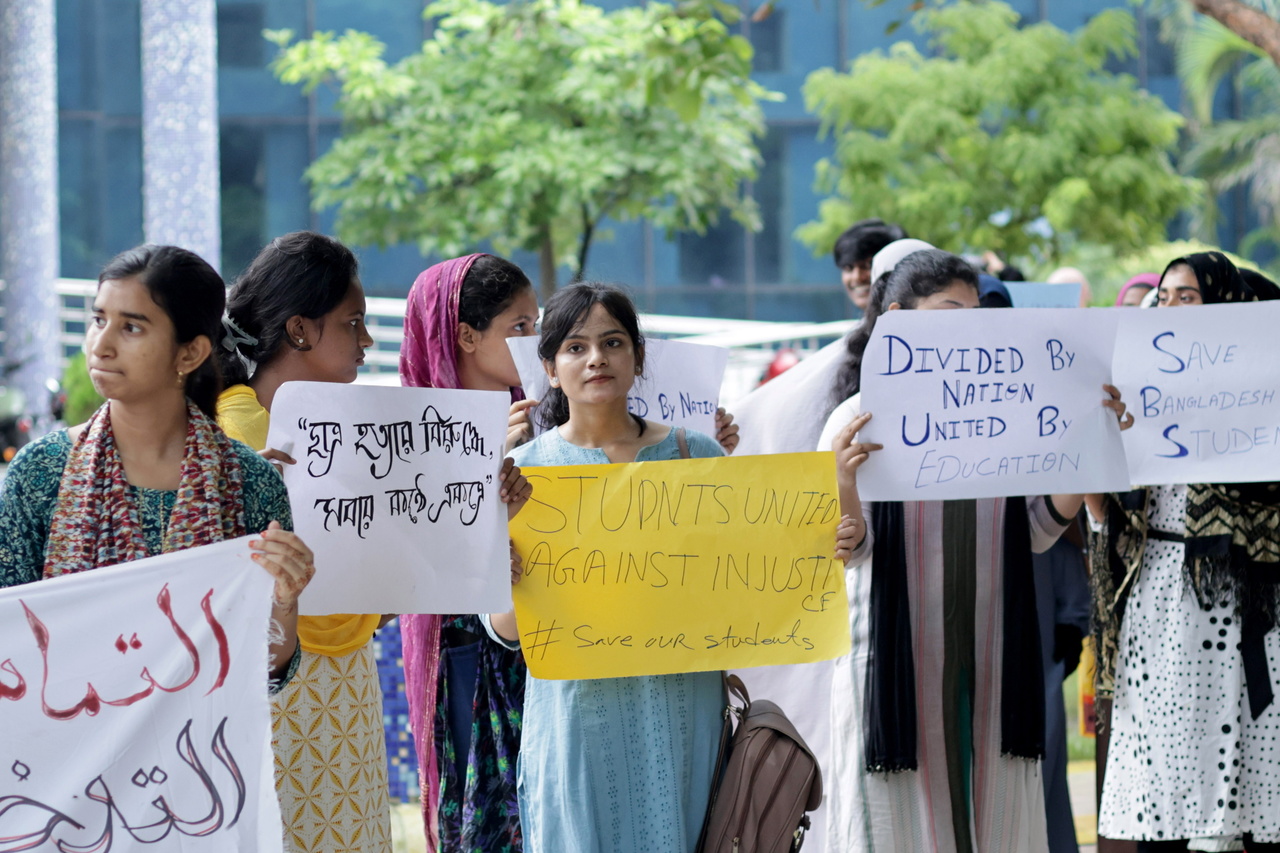 "ছাত্র হত্যার বিরুদ্ধে,
সবার কণ্ঠে একসঙ্গে"
STUDNTS UNITED
AGAINST INJUSTI
CE
# Save our students
BY NATIO
DIVIDED BY
NATION
UNITED BY
EDUCATION
SAVE
BANGLADESH
STUDEN